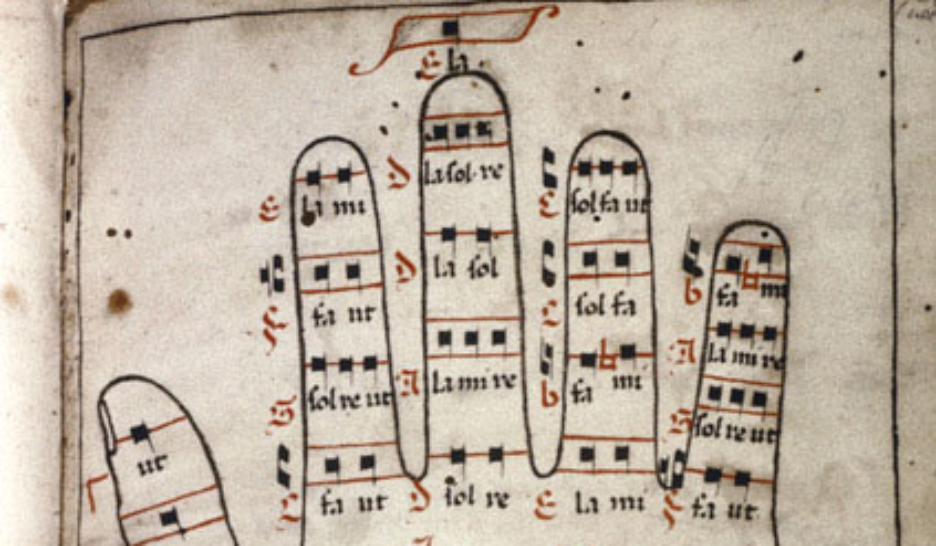 E la
E la mi
F fa ut
G sol re ut
C fa ut
D la sol re
D la sol
A la mi re
D sol re
C sol fa ut
C sol fa
b fa ♮ mi
E la mi
b fa ♮ mi
A la mi re
G sol re ut
F fa ut
Γ ut